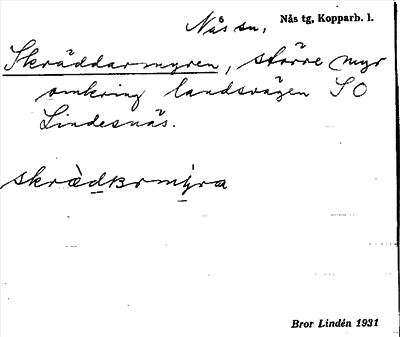 Nås sn. Nås tg, Kopparb. l.
Skräddarmyren, större myr
omkring landsvägen SO
Lindesnäs.
skrädarmýra
Bror Lindén 1931